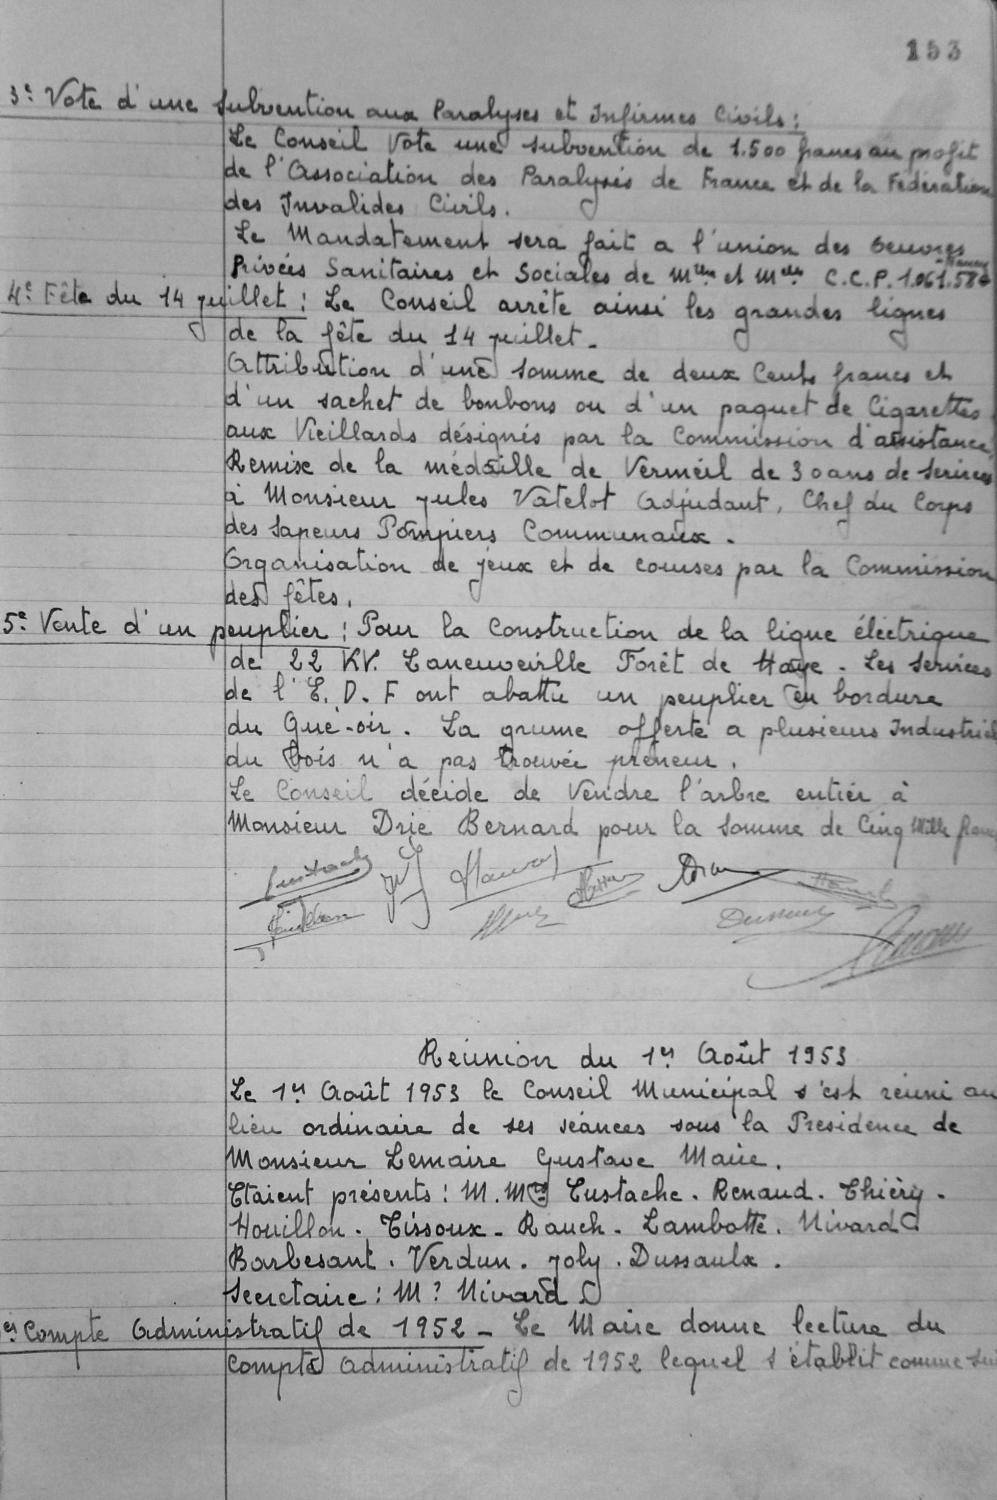 153
3e. Vote d'une subvention aux Paralyses et Infirmes Civils :
Le Conseil Vote une subvention de 1.500 francs au profit
de l'Association des Paralysés de France et de la Fédération
des Invalides Civils.
Le Mandatement sera fait a l'union des Oeuvres
Privées Sanitaires et Sociales de Mthe et Mlle Nancy C.C.P. 1.061.58
4e. Fête du 14 juillet : Le Conseil arrête ainsi les grandes lignes
de la fête du 14 juillet.
Attribution d'une somme de deux Cents francs et
d'un sachet de bonbons ou d'un paquet de Cigarettes
aux Vieillards désignés par la Commission d'assistance.
Remise de la médaille de Vermeil de 30 ans de services
à Monsieur Jules Vatelot Adjudant, Chef du Corps
des Sapeurs Pompiers Communaux.
Organisation de jeux et de courses par la Commission
des fêtes.
5e. Vente d'un peuplier : Pour la Construction de la ligne éléctrique
de 22 KV. Laneuveville Forêt de Haye. Les Services
de l'E.D.F ont abattu un peuplier en bordure
du Gué-oir. La grume offerte a plusieurs Industriel
du Bois n'a pas trouvée preneur.
Le Conseil décide de Vendre l'arbre entier à
Monsieur Drie Bernard pour la Somme de Cinq Mille francs
Eustache
Dussaulx
Réunion du 1er Août 1953
Le 1er Août 1953 le Conseil Municipal s'est réuni au
lieu ordinaire de ses séances sous la Présidence de
Monsieur Lemaire Gustave Maire.
Etaient présents : M.Mrs Eustache. Renaud. Thiéry.
Houillon. Tissoux. Rauch. Lambotte. Nivard
Barbesant. Verdun. Joly. Dussaulx.
Secretaire : Mr Nivard
er Compte Administratif de 1952 - Le Maire donne lecture du
Compte Administratif de 1952 lequel s'établit comme sui